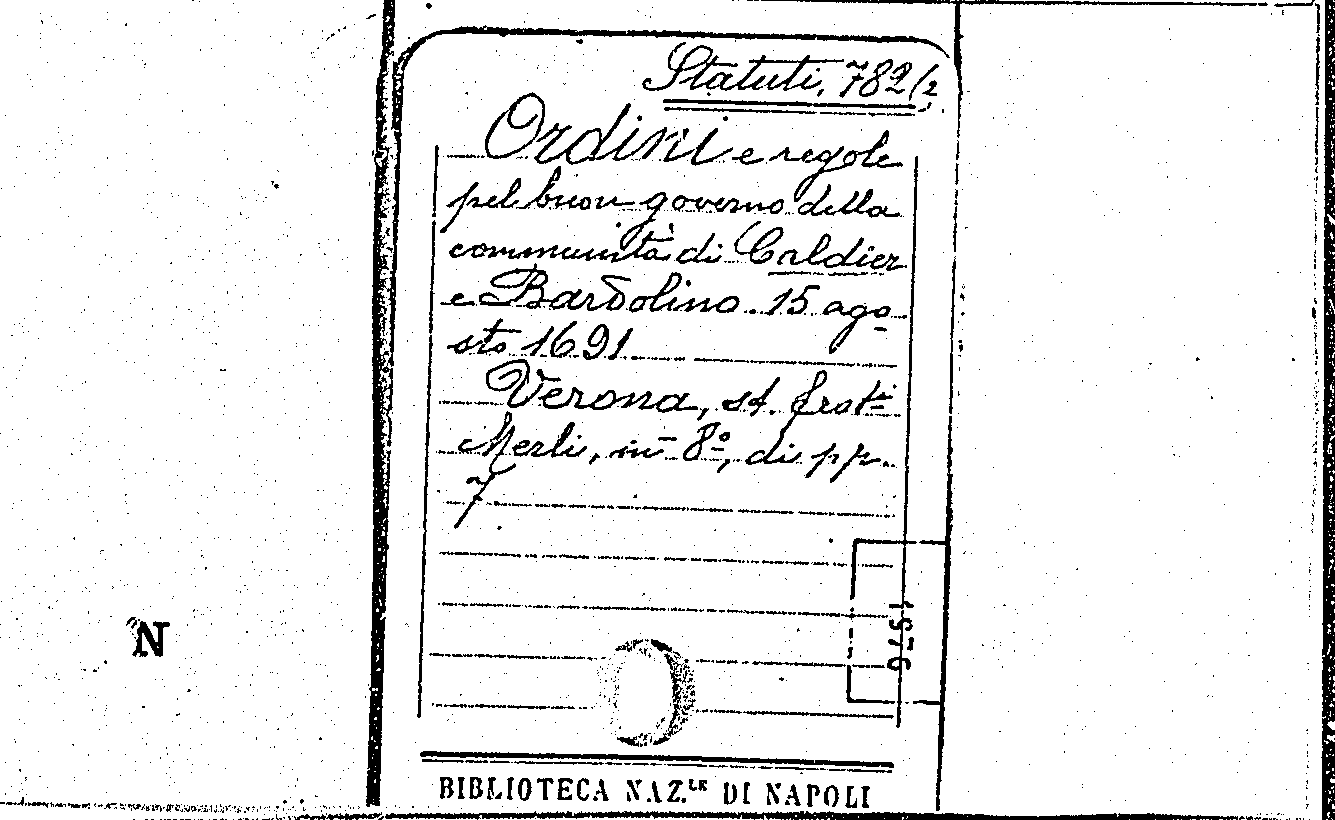 Statuti, 782(2
Ordini e regole
pel buon governo della
communità di Caldier
e Bardolino. 15 ago-
sto 1691
Verona, st. frat.i
Merli, in 8º, di pp.
7
1976
N
BIBLIOTECA NAZ.LE DI NAPOLI